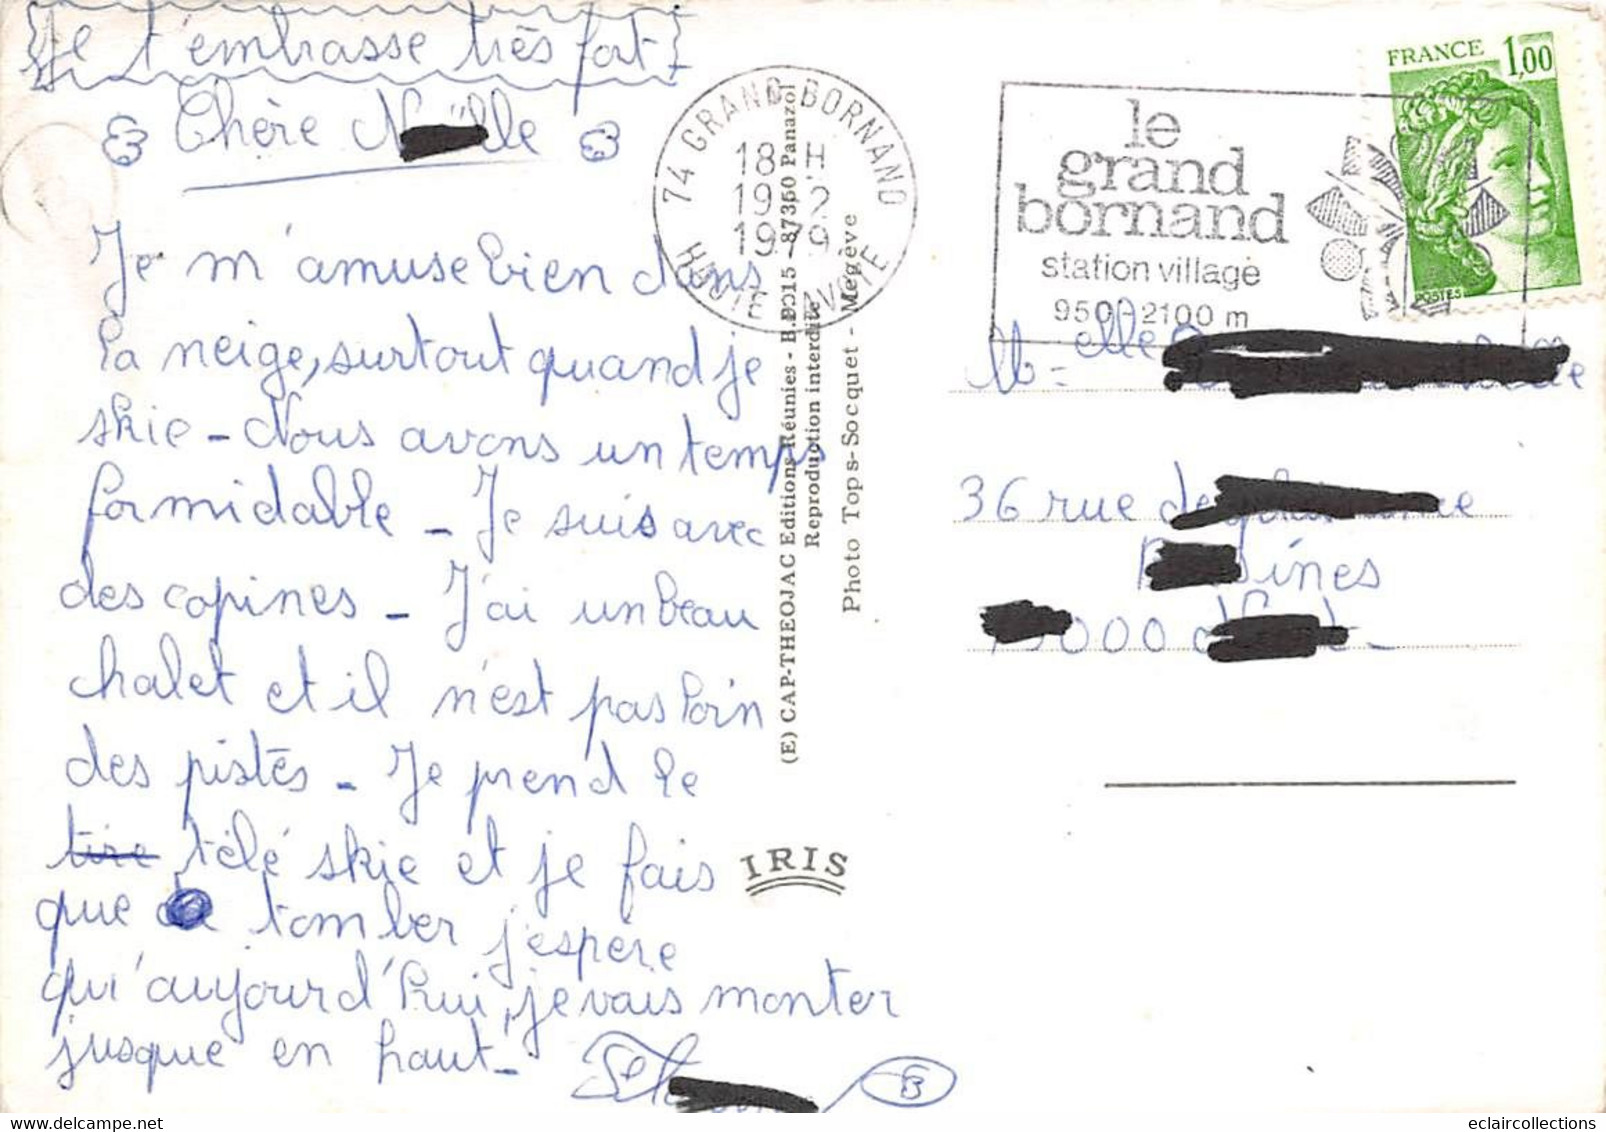 Je t'embrasse très fort
Chère
Je m'amuse bien dans
la neige, surtout quand je
skie - Nous avons un temps
formidable - Je suis avec
des copines - J'ai un beau
chalet et il n'est pas loin
des pistes - Je prend le
tire télé skie et je fais
que tomber j'espère
qu'aujourd'hui, je vais monter
jusque en haut -
74 GRAND-BORNAND
18 H
19 2
1979
HAUTE SAVOIE
(E) CAP-THEOJAC Editions Réunies - B.P. 15 - 87350 Panazol
Reproduction interdite
Photo Tops-Socquet - Megève
IRIS
le
grand
bornand
station village
950-2100 m
FRANCE 1,00
POSTES
M elle
36 rue de
000
eclaircollections